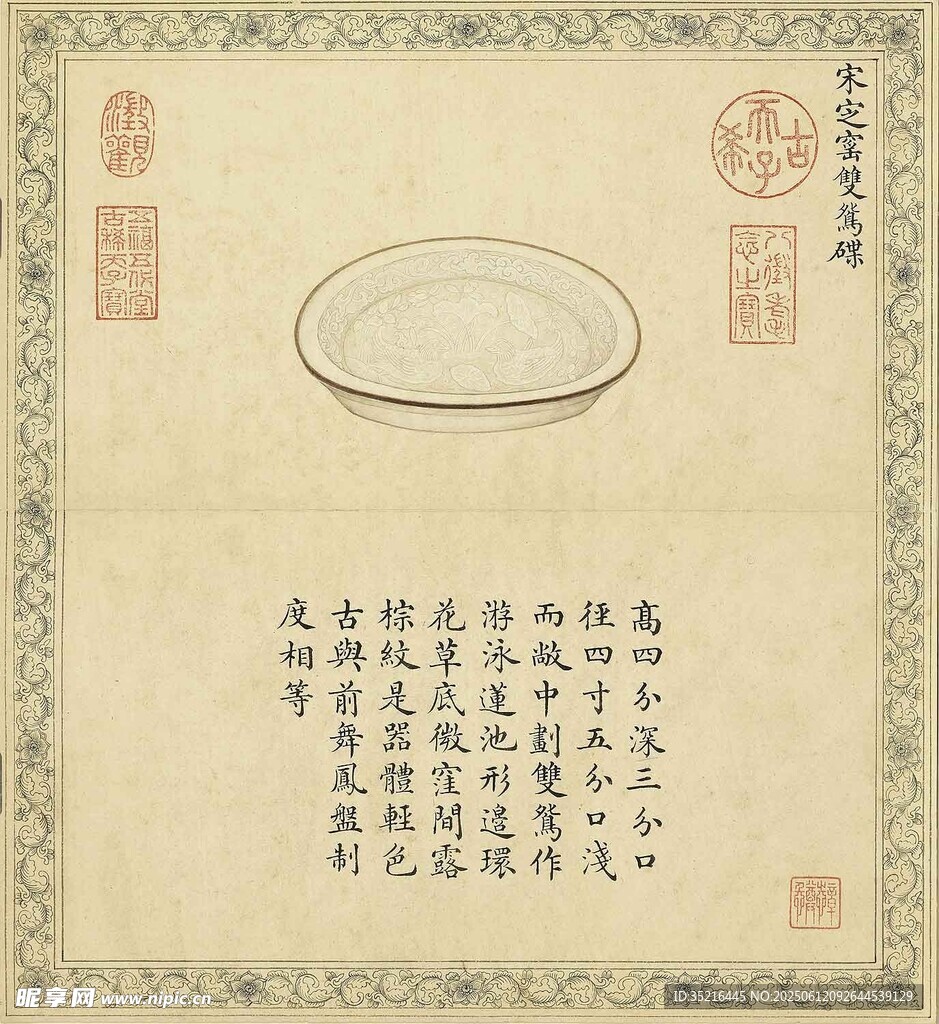 宋定窯雙鴛碟
古希天子
八徵耄念之寶
澂觀
五福五代堂古稀天子寶
高四分深三分口
徑四寸五分口淺
而敞中劃雙鴛作
游泳蓮池形邉環
花草底微窪間露
棕紋是器體輕色
古與前舞鳳盤制
度相等
昵享网 www.nipic.cn
ID:35216445 NO:20250612092644539129